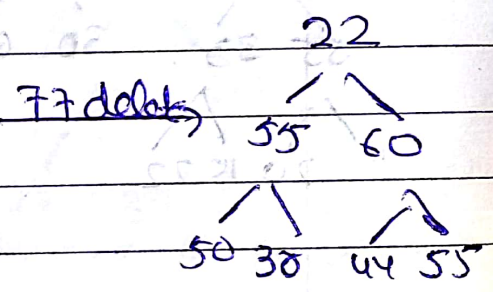 22
77 delet
55 60
50 30 44 55